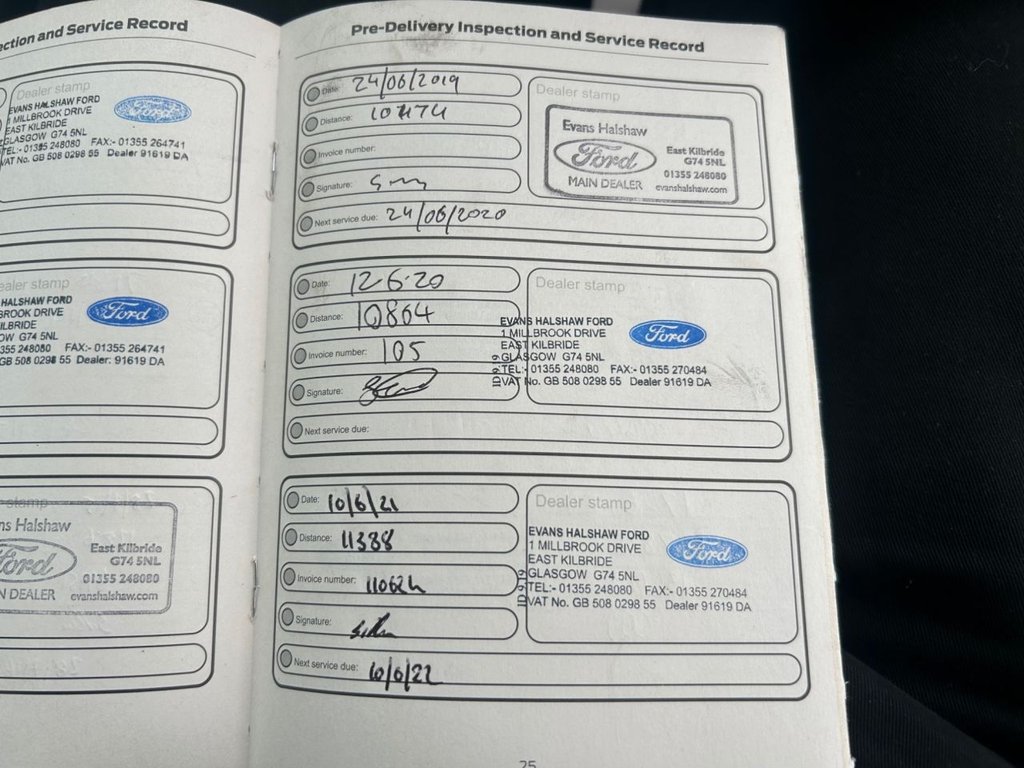 ection and Service Record
Dealer stamp
EVANS HALSHAW FORD
MILLBROOK DRIVE
EAST KILBRIDE
GLASGOW G74 5NL
TEL:- 01355 248080 FAX:- 01355 264741
VAT No. GB 508 0298 55 Dealer 91619 DA
Ford
ealer stamp
HALSHAW FORD
BROOK DRIVE
KILBRIDE
OW G74 5NL
355 248080 FAX:- 01355 264741
GB 508 0298 55 Dealer: 91619 DA
Ford
stamp
ns Halshaw
Ford
East Kilbride
G74 5NL
01355 248080
N DEALER evanshalshaw.com
Pre-Delivery Inspection and Service Record
Date: 24/06/2019
Distance: 10474
Invoice number:
Signature:
Next service due: 24/06/2020
Dealer stamp
Evans Halshaw
Ford
East Kilbride
G74 5NL
01355 248080
MAIN DEALER evanshalshaw.com
Date: 12-6-20
Distance: 10864
Invoice number: 105
Signature:
Next service due:
Dealer stamp
EVANS HALSHAW FORD
1 MILLBROOK DRIVE
EAST KILBRIDE
GLASGOW G74 5NL
TEL:- 01355 248080 FAX:- 01355 270484
VAT No. GB 508 0298 55 Dealer 91619 DA
Ford
Date: 10/6/21
Distance: 11388
Invoice number:
Signature:
Next service due: 10/6/22
Dealer stamp
EVANS HALSHAW FORD
1 MILLBROOK DRIVE
EAST KILBRIDE
GLASGOW G74 5NL
TEL:- 01355 248080 FAX:- 01355 270484
VAT No. GB 508 0298 55 Dealer 91619 DA
Ford